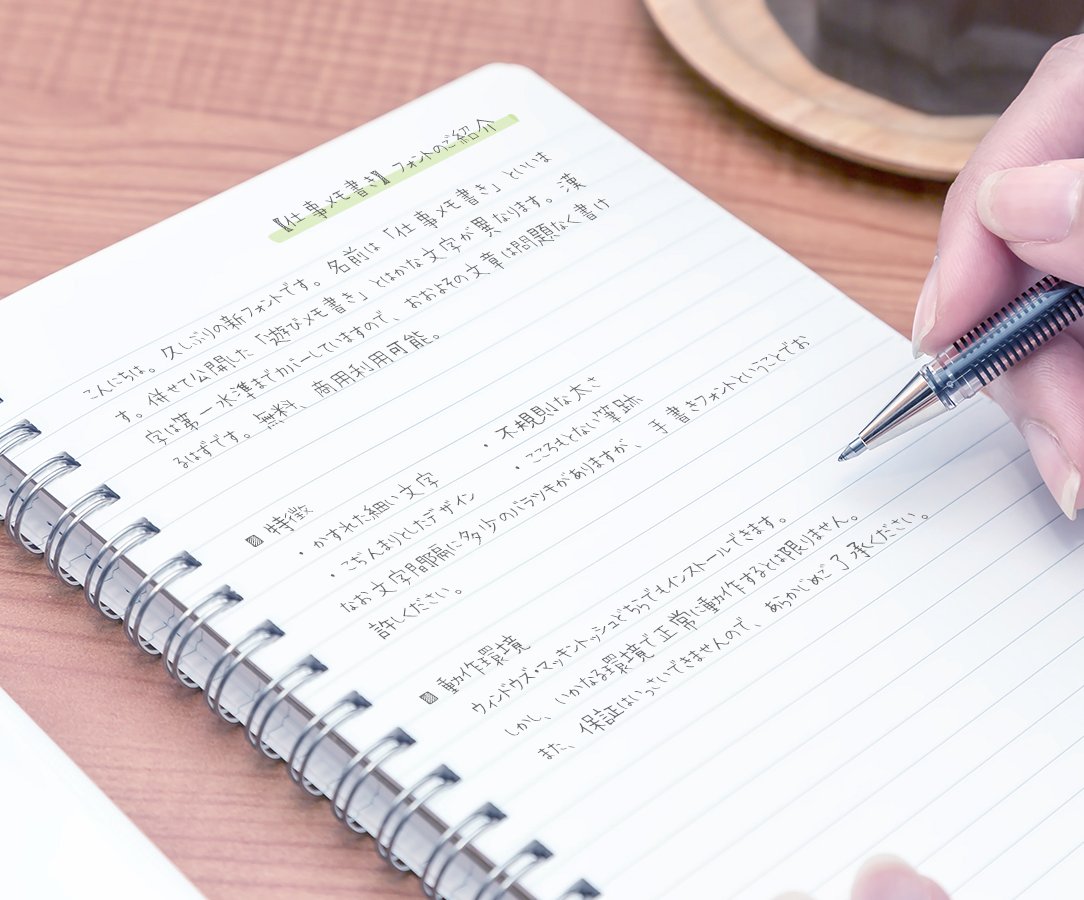 【仕事メモ書き】フォントのご紹介
こんにちは。久しぶりの新フォントです。名前は「仕事メモ書き」といいま
す。併せて公開した「遊びメモ書き」とはかな文字が異なります。漢
字は第一水準までカバーしていますので、おおよその文章は問題なく書け
るはずです。無料、商用利用可能。
■特徴
・かすれた細い文字 ・不規則な太さ
・こぢんまりとしたデザイン ・こころもとない筆跡
なお文字間隔に多少のバラツキがありますが、手書きフォントということでお
許しください。
■動作環境
ウィンドウズ・マッキントッシュどちらでもインストールできます。
しかし、いかなる環境で正常に動作するとは限りません。
また、保証はいっさいできませんので、あらかじめご了承ください。